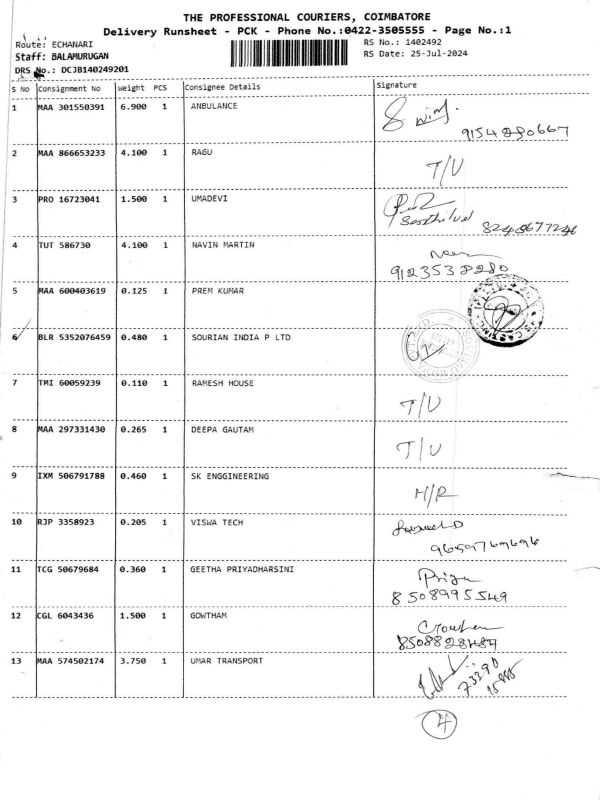 THE PROFESSIONAL COURIERS, COIMBATORE
Delivery Runsheet - PCK - Phone No.:0422-3505555 - Page No.:1
Route: ECHANARI
RS No.: 1402492
Staff: BALAMURUGAN
RS Date: 25-Jul-2024
DRS No.: DCJB140249201
S No Consignment No Weight PCS Consignee Details Signature
1 MAA 301550391 6.900 1 ANBULANCE
2 MAA 866653233 4.100 1 RAGU T/U
3 PRO 16723041 1.500 1 UMADEVI
4 TUT 586730 4.100 1 NAVIN MARTIN
9123538280
5 MAA 600403619 0.125 1 PREM KUMAR
6 BLR 5352076459 0.480 1 SOURIAN INDIA P LTD
7 TMI 60059239 0.110 1 RAMESH HOUSE T/U
8 MAA 297331430 0.265 1 DEEPA GAUTAM T/U
9 IXM 506791788 0.460 1 SK ENGGINEERING H/R
10 RJP 3358923 0.205 1 VISWA TECH
9659769696
11 TCG 50679684 0.360 1 GEETHA PRIYADHARSINI Priya
8508995549
12 CGL 6043436 1.500 1 GOWTHAM
8508828484
13 MAA 574502174 3.750 1 UMAR TRANSPORT
73390
4